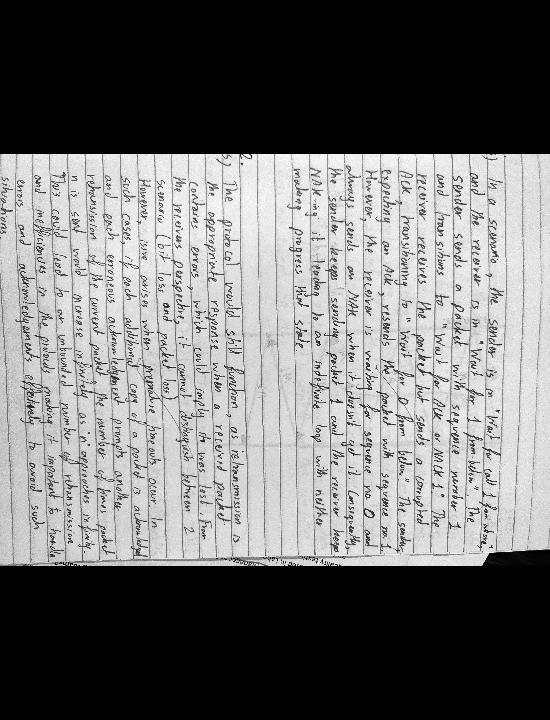 ) In a scenario, the sender is in "Wait for call 1 from above,"
and the receiver is in "Wait for 1 from below". The
sender sends a packet with sequence number 1
and transitions to "Wait for ACK or NACK 1." The
receiver receives the packet but sends a corrupted
ACK, transitioning to "Wait for 0 from below." The sender,
expecting an ACK, resends the packet with sequence no. 1
However, the receiver is waiting for sequence no 0 and
always sends an NAK when it doesn't get it. Consequently,
the sender keeps sending packet 1 and the receiver keeps
NAKing it leading to an indefinite loop with neither
making progress that state.
2.
5) The protocol would still function, as retransmission is
the appropriate response when a received packet
contains errors, which could imply it was lost. From
the receivers perspective, it cannot distinguish between 2
scenario (bit loss and packet loss)
However, issue arises when premature timeouts occur. In
such cases, if each additional copy of a packet is acknowledged
and each erroneous acknowledgement prompts another
retransmission of the current packet the number of times packet
n is sent would increase infinitely as 'n' approaches infinity.
This could lead to an unbounded number of retransmission
and inefficiencies in the process making it important to handle
errors and acknowledgements effectively to avoid such
situations.